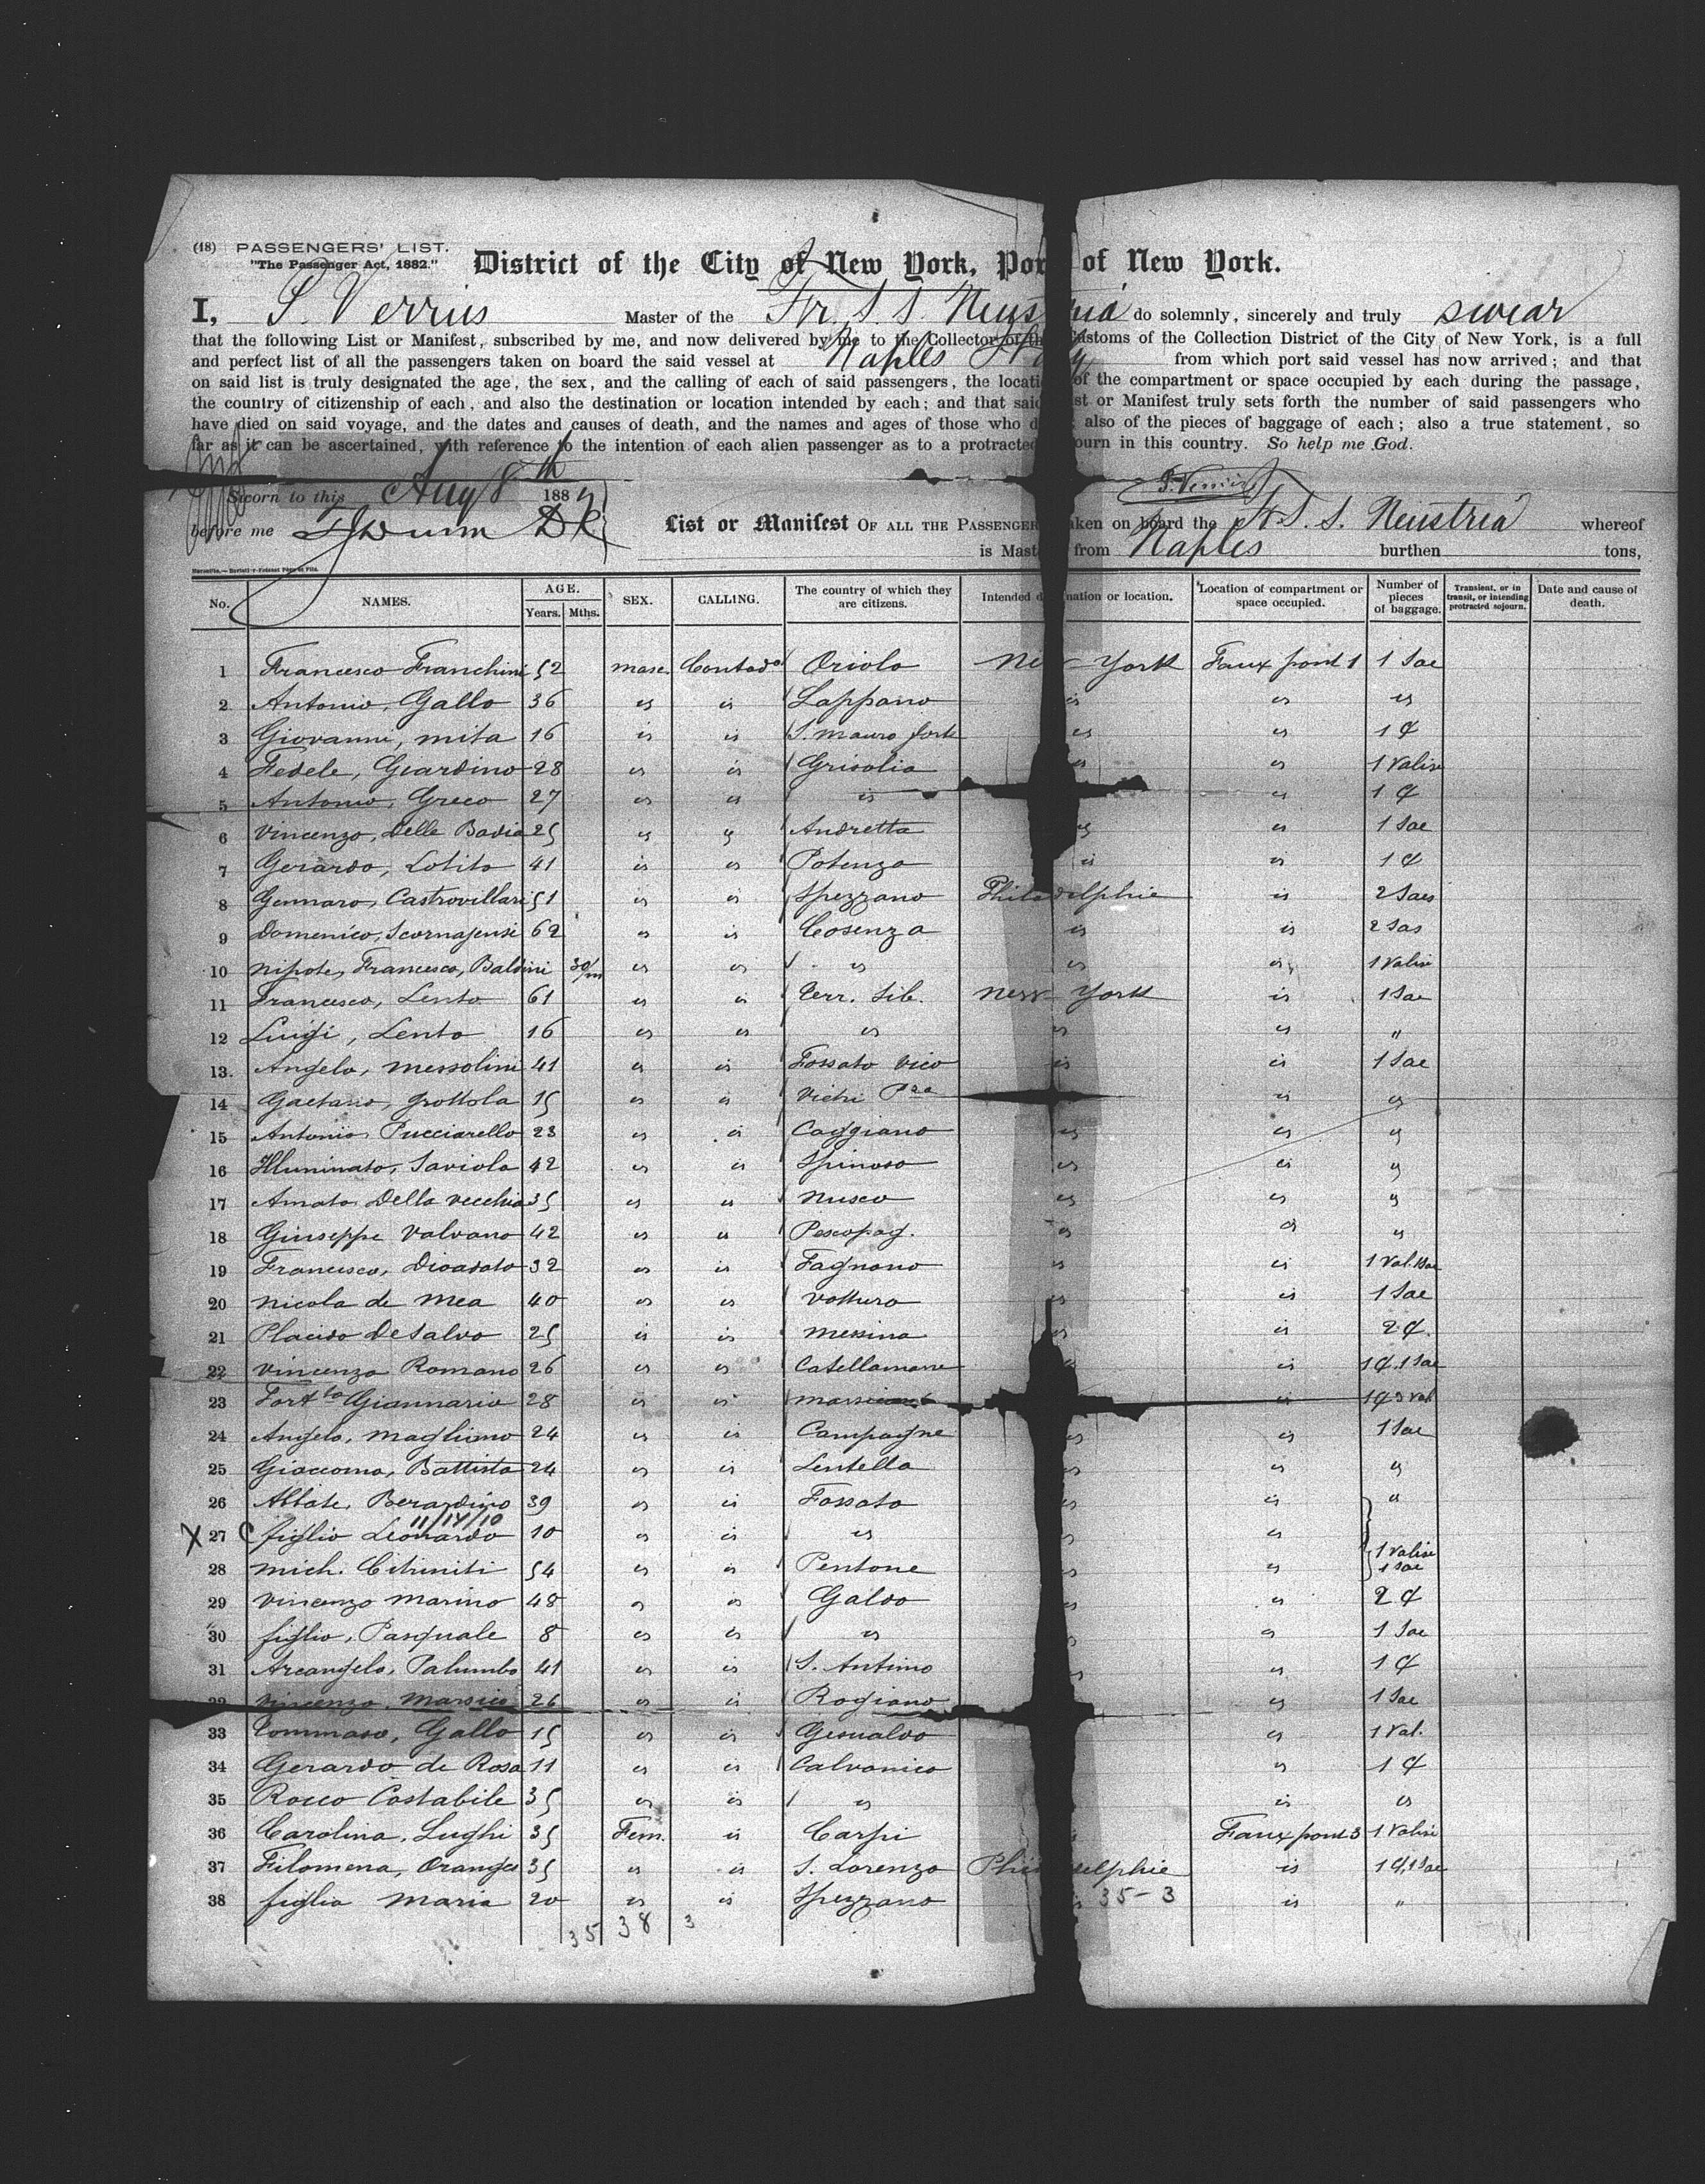 (18) PASSENGERS' LIST.
"The Passenger Act, 1882."
District of the City of New York, Port of New York.
I, S. Verrius Master of the Fr. S. S. Neustria do solemnly, sincerely and truly swear
that the following List or Manifest, subscribed by me, and now delivered by me to the Collector of the Customs of the Collection District of the City of New York, is a full
and perfect list of all the passengers taken on board the said vessel at Naples Italy from which port said vessel has now arrived; and that
on said list is truly designated the age, the sex, and the calling of each of said passengers, the location of the compartment or space occupied by each during the passage,
the country of citizenship of each, and also the destination or location intended by each; and that said List or Manifest truly sets forth the number of said passengers who
have died on said voyage, and the dates and causes of death, and the names and ages of those who died; also of the pieces of baggage of each; also a true statement, so
far as it can be ascertained, with reference to the intention of each alien passenger as to a protracted sojourn in this country. So help me God.
Sworn to this Aug 8th 188
before me
List or Manifest OF ALL THE PASSENGERS taken on board the Fr. S. S. Neustria whereof
is Master, from Naples burthen tons,
No. NAMES. AGE. Years. Mths. SEX. CALLING. The country of which they are citizens. Intended destination or location. Location of compartment or space occupied. Number of pieces of baggage. Transient, or in transit, or intending protracted sojourn. Date and cause of death.
1 Francesco Franchini 52 masc. Contado Oriolo New York Faux pont 1 1 Sac
2 Antonio, Gallo 36 is is Lappano is is is
3 Giovanni, mita 16 is is S. mauro forte is is 1 C
4 Fedele, Giardino 28 is is Grisolia is is 1 Valise
5 Antonio, Greco 27 is is is is 1 C
6 Vincenzo, Delle Badia 25 is is Andretta is is 1 Sac
7 Gerardo, Lotito 41 is is Potenza is is 1 C
8 Gennaro, Castrovillari 51 is is Spezzano Philadelphie is 2 Sacs
9 Domenico, Scornajensi 62 is is Cosenza is is 2 Sas
10 nipote, Francesco, Baldini 30/m is is is is is 1 Valise
11 Francesco, Lento 61 is is Terr. Sib. New York is 1 Sac
12 Luigi, Lento 16 is is is is is "
13. Angelo, Messolini 41 is is Fossato Vico is is 1 Sac
14 Gaetano, Grottola 15 is is Vietri Pza is is
15 Antonio Pucciarello 23 is is Caggiano is is is
16 Illuminato, Saviola 42 is is Spinoso is is is
17 Amato Della Vecchia 35 is is Nusco is is is
18 Giuseppe Valvano 42 is is Pescopag. is is is
19 Francesco, Dioadato 32 is is Fagnano is is 1 Val. 1 Sac
20 Nicola de Mea 40 is is Volturo is is 1 Sac
21 Placido De Salvo 25 is is Messina is is 2 C.
22 Vincenzo Romano 26 is is Catellamare is is 1 C. 1 Sac
23 Fortto Giannario 28 is is is 1 C 3 Val
24 Angelo, Maglione 24 is is Campagne is is 1 Sac
25 Giaccomo, Battista 24 is is Lentella is is is
26 Abbate, Berardino 39 is is Fossato is is "
11/14/10
X 27 C figlio Leonardo 10 is is is is is
28 Mich. Citriniti 54 is is Pentone is is 1 Valise 1 Sac
29 Vincenzo Marino 48 is is Galdo is is 2 C
30 figlio, Pasquale 8 is is is is is 1 Sac
31 Arcangelo, Palumbo 41 is is S. Antimo is is 1 C
32 Vincenzo, Marsico 26 is is Rogiano is 1 Sac
33 Tommaso, Gallo 15 is is Gesualdo is 1 Val.
34 Gerardo de Rosa 11 is is Calvanico is 1 C
35 Rocco Costabile 35 is is is is is
36 Carolina, Lughi 35 Fem. is Carpi Faux pont 3 1 Valise
37 Filomena, Oranges 35 is is S. Lorenzo Philadelphie is 1 C, 1 Sac
38 figlia Maria 20 is is Spezzano is 35-3 is "
35 38 3